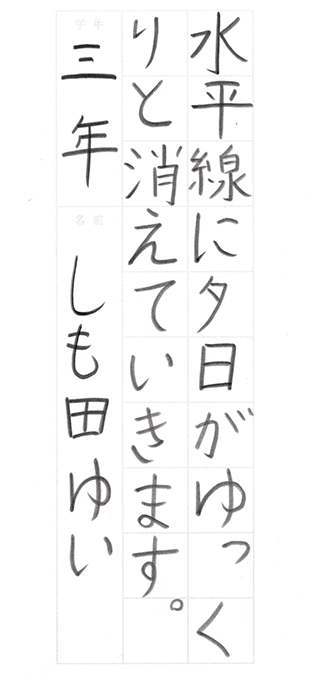 水平線に夕日がゆっく
りと消えていきます。
学年
三年
名前
しも田ゆい